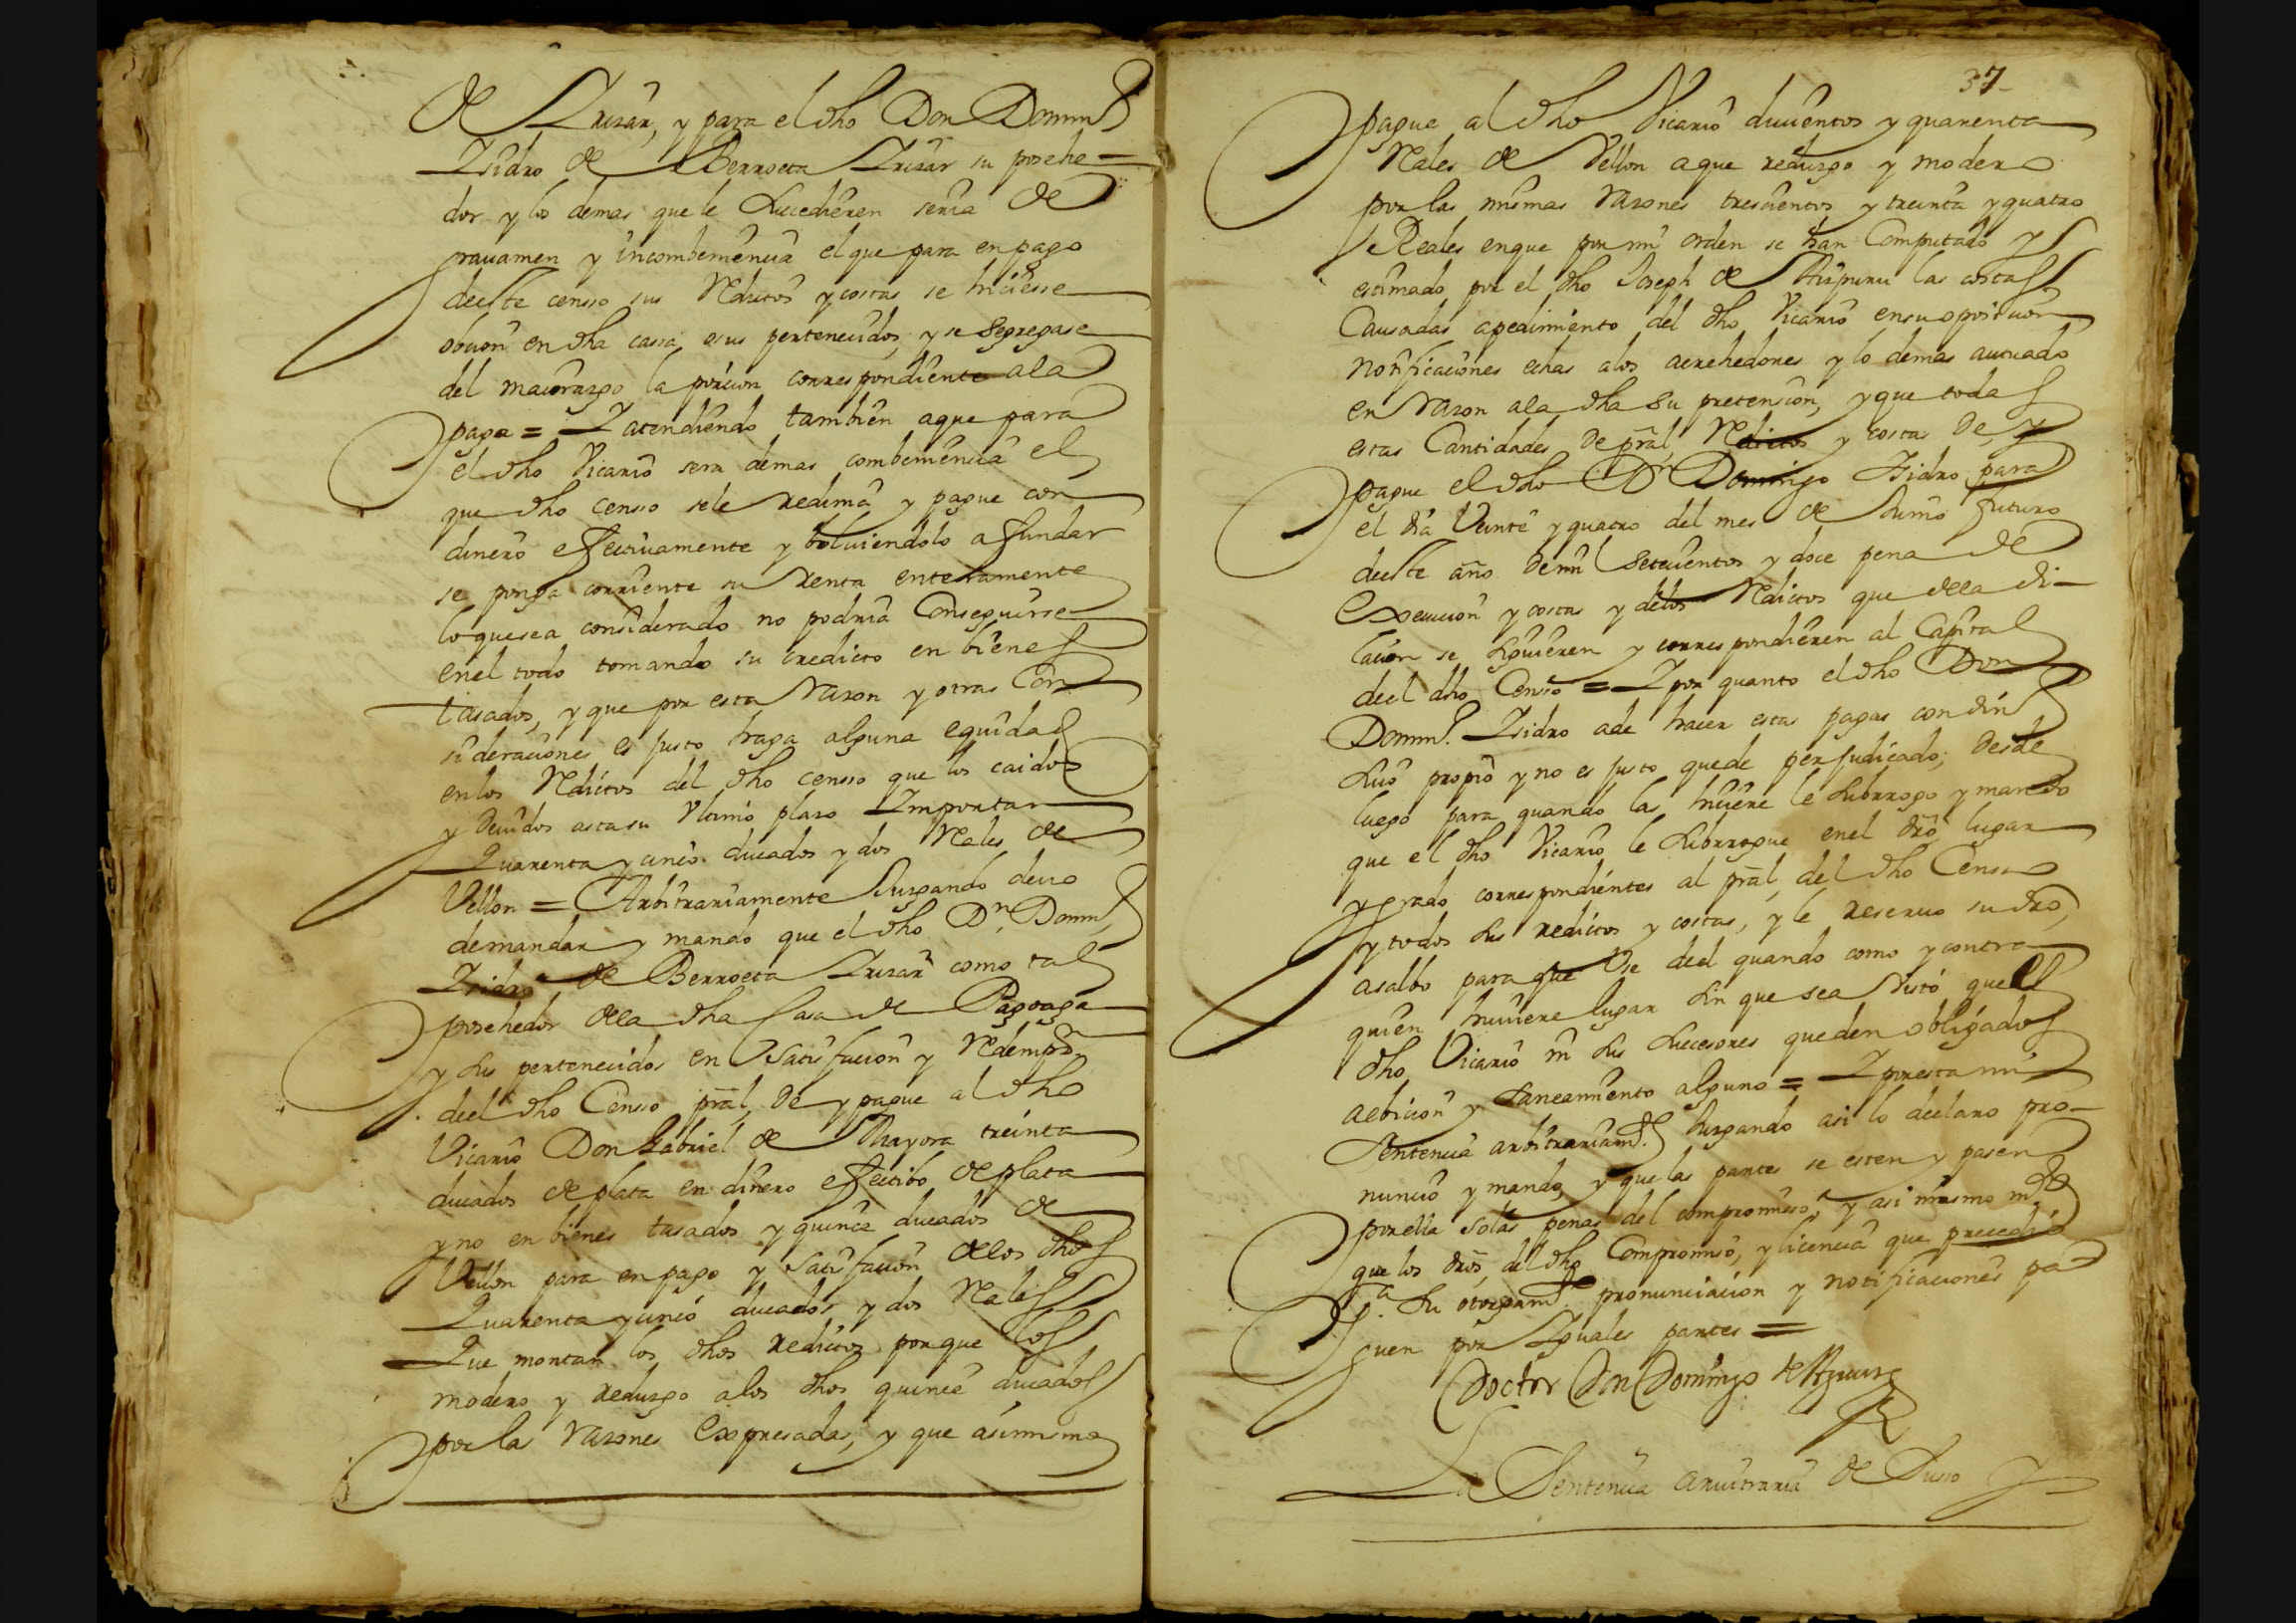 de Yrizar, y para el dho Don Domin.
Ysidro de Berroeta Yrizar su posehe=
dor y los demas que le succedieren seria de
gravamen y incombeniencia el que para en pago
deeste censo sus Reditos y costas se hiciesse
obcion en dha cassa, o sus pertenecidos, y se segregase
del maiorazgo la porcion correspondiente a la
paga = Y atendiendo tambien a que para
el dho Vicario sera demas combeniencia el
que dho censo se le redima y pague con
dinero effectivamente y bolviendolo a fundar
se ponga corriente su renta enteramente
lo que sea considerado no podria conseguirse
en el todo tomando su credicto en bienes
tasados, y que por esta razon y otras con
sideraciones es justo haga alguna equidad
en los Redictos del dho censso que los caidos
y devidos asta su ultimo plazo Importan
Quarenta y cinco ducados y dos Reales de
Vellon = Arbitrariamente Juzgando devo
demandar y mando que el dho Dn. Domin.
Ysidro de Berroeta Yrizar como tal
posehedor de la dha Casa de Pagoaga
y sus pertenecidos en Satisfacion y Redempon.
deel dho Censso prãl, de y pague al dho
Vicario Don Gabriel de Mayora treinta
ducados de plata en dinero effectibo de plata
y no en bienes tasados y quince ducados de
Vellon para en pago y Satisfacion de los dhos
Quarenta y cinco ducados, y dos Reales
Que montan los dhos redictos porque los
modero y reduzgo a los dhos quince ducados
por las razones expresadas, y que asimismo
37
pague al dho Vicario ducientos y quarenta
Reales de Vellon a que reduzgo y modero
por las mismas razones trescientos y treinta y quatro
Reales en que por mi orden se han computado y
estimado por el dho Joseph de Aizpuru las costas
Causadas a pedimiento del dho Vicario en su oposicion
notificaciones echas a los acrehedores y lo demas autuado
en razon a la dha su pretension, y que todas
estas Cantidades de prãl, Redictos y costas de, y
pague el dho Dn Domingo Ysidro para
el dia Veinte y quatro del mes de Junio futuro
deeste año de mil setecientos y doce pena de
Execucion y costas y de los Redictos que de la di-
lacion se siguieren y correspondieren al Capital
deel dho Censo = Y por quanto el dho Don
Domin. Ysidro a de hacer estas pagas con din.
suio proprio y no es justo quede perjudicado; desde
luego para quando las hiciere le subrrogo y mando
que el dho Vicario le subrrogue en el dro lugar
y grado correspondientes al prãl, del dho Censo
y todos sus redictos y costas, y le reservo su dro,
a salbo para que use deel quando como y contra
quien huviere lugar sin que sea visto que el
dho Vicario ni sus succesores queden obligados
a ebicion y saneamiento alguno = Y por esta mi
Sentencia arbitrariamte. Juzgando asi lo declaro pro-
nuncio y mando, y que las partes se esten y pasen
por ella so las penas del compromisso, y asi mismo mdo
que los dros, del dho Compromiso, y licencia que precedió
pa. su otorgamto. pronunciacion y notificaciones pa
guen por Yguales partes =
Doctor Don Domingo de Aguirre
La Sentencia arvitraria de Suso